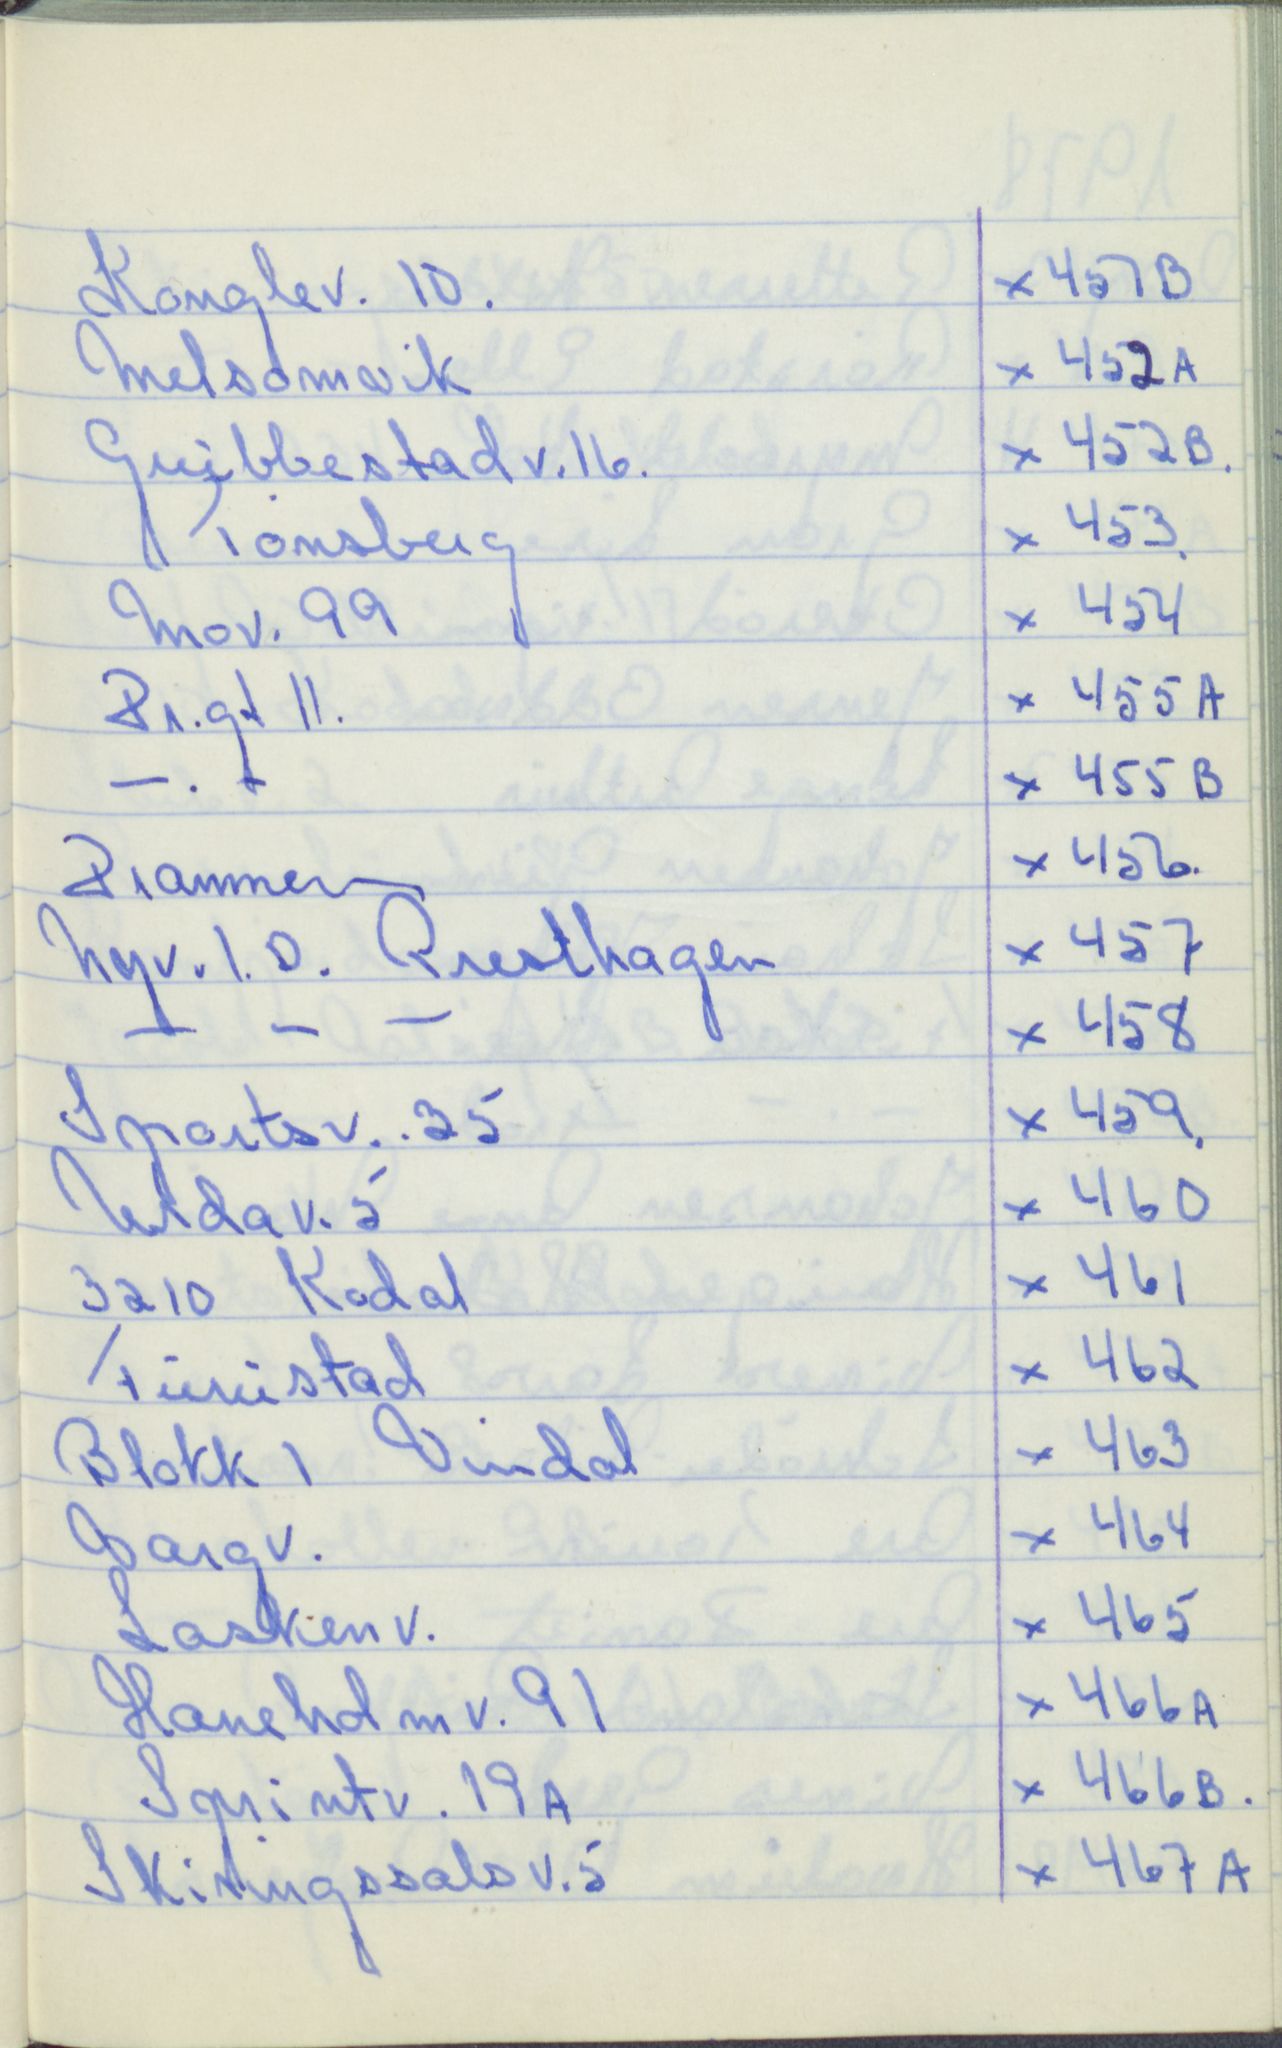 Konglev. 10. x 451B
Melsomvik x 452A
Guibbestadv. 16. x 452B.
Tønsberg x 453.
Mov. 99 x 454
Pr.gt 11. x 455A
— . + x 455B
Drammen x 456.
Nyv. 1.D. Presthagen x 457
— — — x 458
Sportsv. 35 x 459.
x 460
3210 Kodal x 461
Furustad x 462
Blokk 1 Vindal x 463
x 464
Laskenv. x 465
Haneholmv. 91 x 466A
Sprintv. 19A x 466B.
Skiringssalsv. 5 x 467A